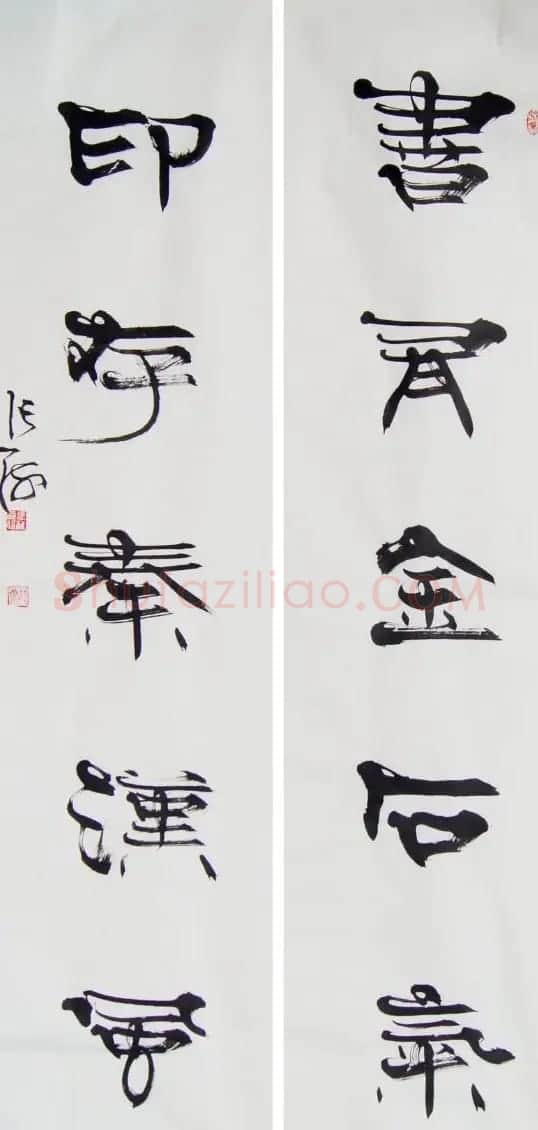 書有金石氣
印存秦漢風
shufaziliao.COM